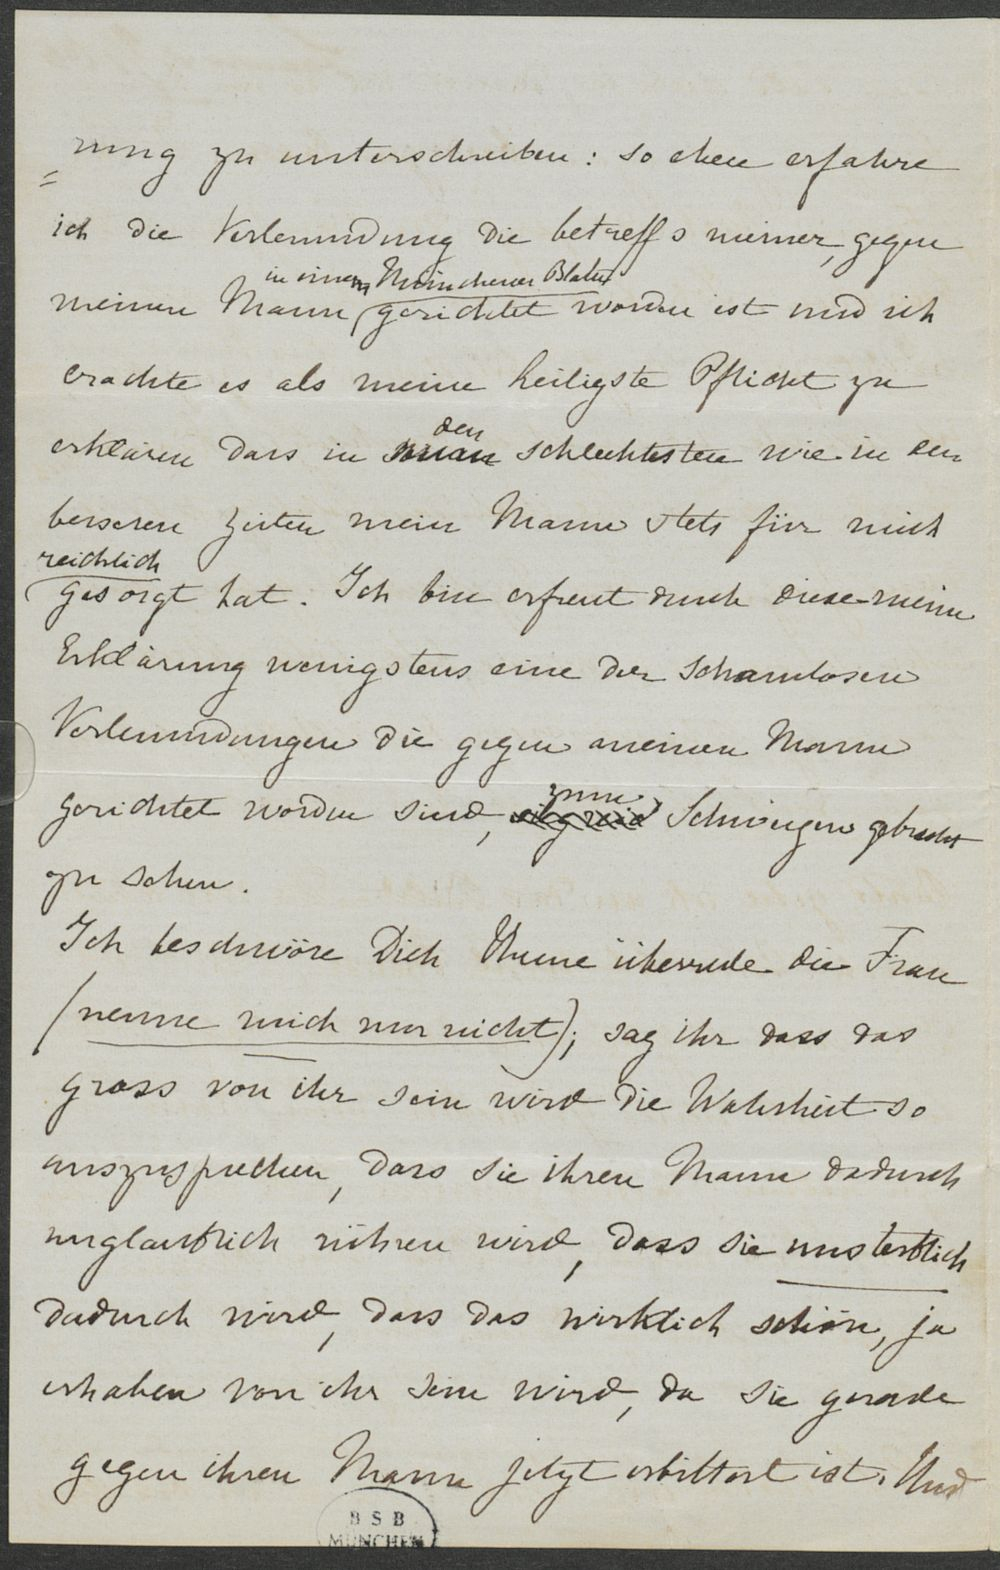 = nung zu unterschreiben: so eben erfahre
ich die Verleumdung die betreffs meiner, gegen
in einem Münchener Blatte
meinen Mann gerichtet worden ist und ich
erachte es als meine heiligste Pflicht zu
den
erklären dass in schlechtesten wie in den
besseren Zeiten mein Mann stets für mich
reichlich
gesorgt hat. Ich bin erfreut durch diese meine
Erklärung wenigstens eine der schamlosen
Verleumdungen die gegen meinen Mann
zum
gerichtet worden sind, Schweigen gebracht
zu sehen.
Ich beschwöre Dich Theure überrede die Frau
(nenne mich nur nicht); sag ihr dass das
gross von ihr sein wird die Wahrheit so
auszusprechen, dass sie ihren Mann dadurch
unglaublich rühren wird, dass sie unsterblich
dadurch wird, dass das wirklich schön, ja
erhaben von ihr sein wird, da sie gerade
gegen ihren Mann jetzt erbittert ist. Und
BSB
MÜNCHEN